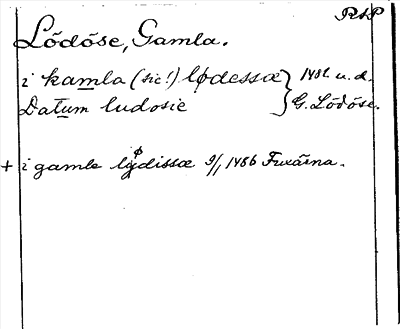 RAP
Lödöse, Gamla.
i kamla (sic!) lødessæ } 1481 u. d.
Datum ludosie } G. Lödöse.
+ i gamle lydissæ 9/1 1486 Fuxärna.
ø